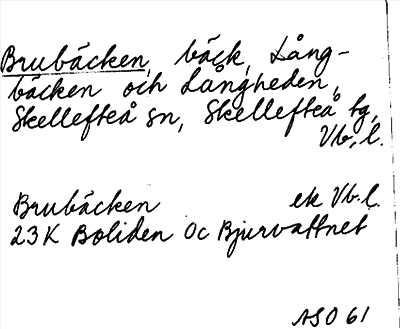 Brubäcken, bäck, Lång-
bäcken och Långheden,
Skellefteå sn, Skellefteå tg,
Vb. l.
Brubäcken ek Vb. l.
23K Boliden Oc Bjurvattnet
ASO 61